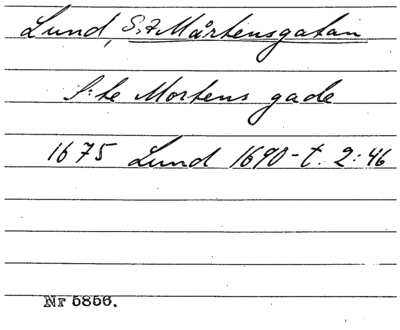 Lund, S:t Mårtensgatan
S:te Mortens gade
1675 Lund 1690-t. 2:46
Nr 5856.